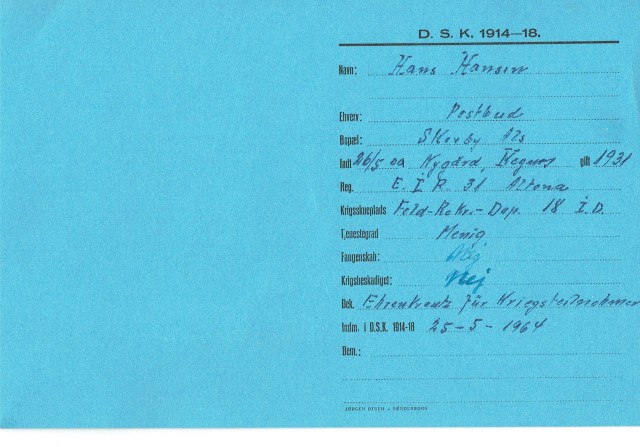 D. S. K. 1914—18.
Navn: Hans Hansen
Ehverv: Postbud
Bopæl: Skovby Als
født 26/5 00 Nygård, Kegnæs gift 1931
Reg. E. I. R. 31 Altona
Krigsskueplads Feld-Rekr-Dep. 18 I.D.
Tjenestegrad Menig
Fangenskab: Nej
Krigsbeskadiget: Nej
Dek. Ehrenkreutz für Kriegsteilnehmer
Indm. i D.S.K. 1914-18 25-5-1964
Bem.:
JØRGEN OTSEN – SØNDERBORG